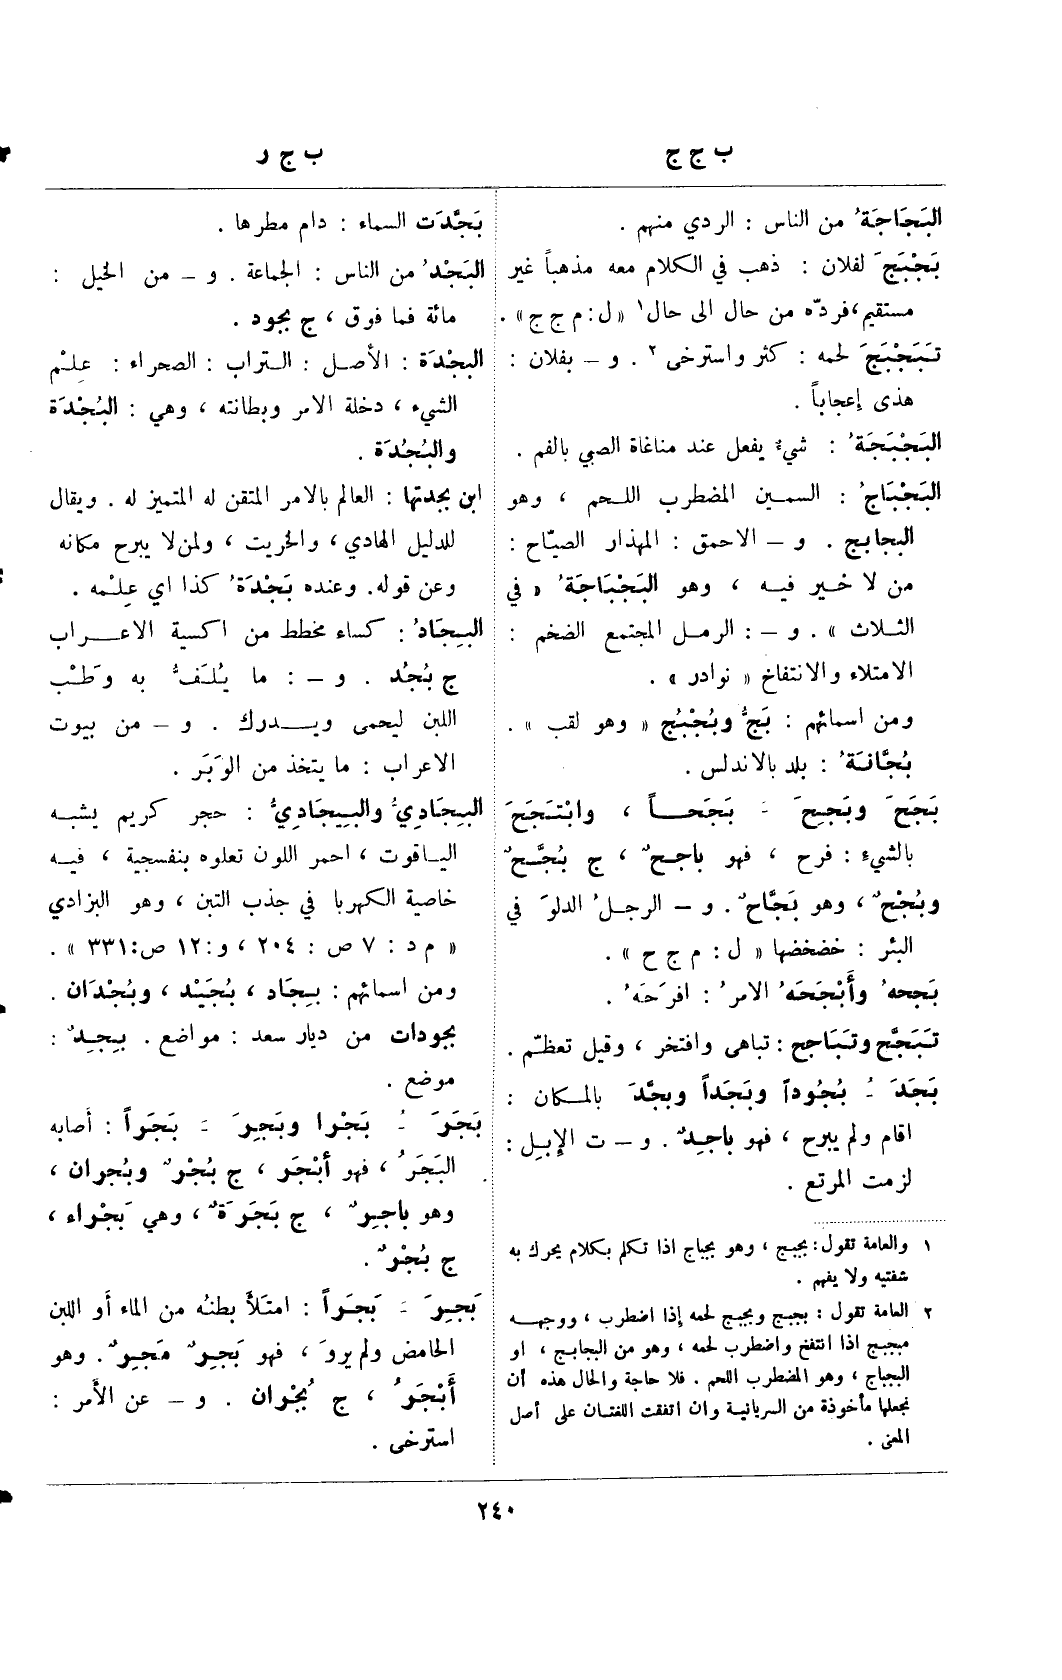 ب ج ج
ب ج ر
البَجَاجَةُ من الناس : الردي منهم .
بَجْبَجَ لفلان : ذهب في الكلام معه مذهباً غير
مستقيم،فردّه من حال الى حال١ «ل:م ج ج» .
تَبَجْبَجَ لحمه : كثر واسترخى ٢ . و – بفلان :
هذى إعجاباً .
البَجْبَجَةُ : شيءٌ يفعل عند مناغاة الصبي بالفم .
البَجْبَاجُ : السمين المضطرب اللحم ، وهو
البجابج . و – الاحمق : المهذار الصيّاح :
من لا خير فيه ، وهو البَجْبَاجَةُ « في
الثلاث » . و – : الرمل المجتمع الضخم :
الامتلاء والانتفاخ « نوادر » .
ومن اسمائهم : بَجُّ وبُجْبُج « وهو لقب » .
بُجَّانَةُ : بلد بالاندلس .
بَجَحَ وبَجِحَ َ بَجَحاً ، وابْتَجَحَ
بالشيء : فرح ، فهو باجحٌ ، ج بُجَّحٌ
وبُجْحٌ ، وهو بَجَّاحٌ . و – الرجلُ الدلوَ في
البئر : خضخضها « ل : م ج ح » .
بَجحهُ وأَبْجَحَهُ الامرُ : افرَحَهُ .
تَبَجَّح وتَبَاجح : تباهى وافتخر ، وقيل تعظّم .
بَجَدَ ُ بُجُوداً وبَجَداً وبجَّدَ بالمكان :
اقام ولم يبرح ، فهو باجِدٌ . و – ت الإبِل :
لزمت المرتع .
١ والعامة تقول: بجبج ، وهو بجباج اذا تكلم بكلام يحرك به
شفتيه ولا يفهم .
٢ العامة تقول : بجبج وبجبج لحمه إذا اضطرب ، ووجهه
مبجبج اذا انتفخ واضطرب لحمه ، وهو من البجابج ، او
البجباج ، وهو المضطرب اللحم . فلا حاجة والحال هذه أن
نجعلها مأخوذة من السريانية وان اتفقت اللغتان على أصل
المعنى .
بَجَّدَت السماء : دام مطرها .
البَجْدُ من الناس : الجماعة . و – من الخيل :
مائة فما فوق ، ج بجود .
البجْدَة : الأصل : التراب : الصحراء : عِلْم
الشيء ، دخلة الامر وبطانته ، وهي : البُجْدَة
والبُجُدَة .
ابن بجدتها : العالم بالامر المتقن له المتميز له . ويقال
للدليل الهادي ، والخريت ، ولمن لا يبرح مكانه
وعن قوله. وعنده بَجْدَةُ كذا اي عِلْمه .
البِجَادُ : كساء مخطط من اكسية الاعراب
ج بُجُد . و – : ما يُلَفُّ به وَطْب
اللبن ليحمى ويدرك . و – من بيوت
الاعراب : ما يتخذ من الوَبَر .
البِجَادِيُّ والبِيجَادِيُّ : حجر كريم يشبه
الياقوت ، احمر اللون تعلوه بنفسجية ، فيه
خاصية الكهربا في جذب التبن ، وهو البزادي
« م د : ٧ ص : ٢٠٤ ، و:١٢ ص:٣٣١ » .
ومن اسمائهم : بِجَاد ، بُجَيْد ، وبُجْدَان .
بجودات من ديار سعد : مواضع . بِجِدٌ :
موضع .
بَجَرَ ُ بَجْرا وبَجِرَ َ بَجَراً : أصابه
البَجَرُ ، فهو أبْجَر ، ج بُجْرٌ وبُجران ،
وهو باجِرٌ ، ج بَجَرَةٌ ، وهي بَجْراء ،
ج بُجْرٌ .
بَجِرَ َ بَجَراً : امتَلأَ بطنُه من الماء أو اللبن
الحامض ولم يروَ ، فهو بَجِرٌ مَجِرٌ . وهو
أَبْجَرُ ، ج بُجْران . و – عن الأمر :
استرخى .
٢٤٠